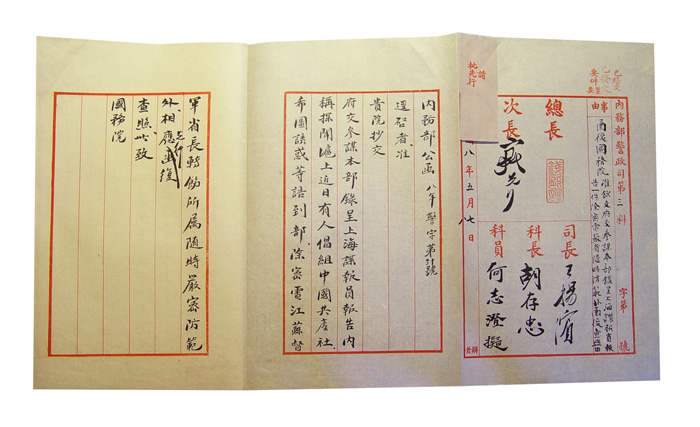 內務部警政司第三科 字第 號
事由
函復國務院准鈔交府交參謀本部錄呈上海諜報員報
總長
次長
司長 王揚濱
科長 胡存忠
科員 何志澄擬
八年五月七日
內務部公函 八年警字第 號
逕啓者准
貴院抄交
府交參謀本部錄呈上海諜報員報告內
稱探聞滬上近日有人倡組中國共產社
希圖誘惑等語到部除密電江蘇督
軍省長轉飭所属随時嚴密防範
外相應函復
查照此致
國務院